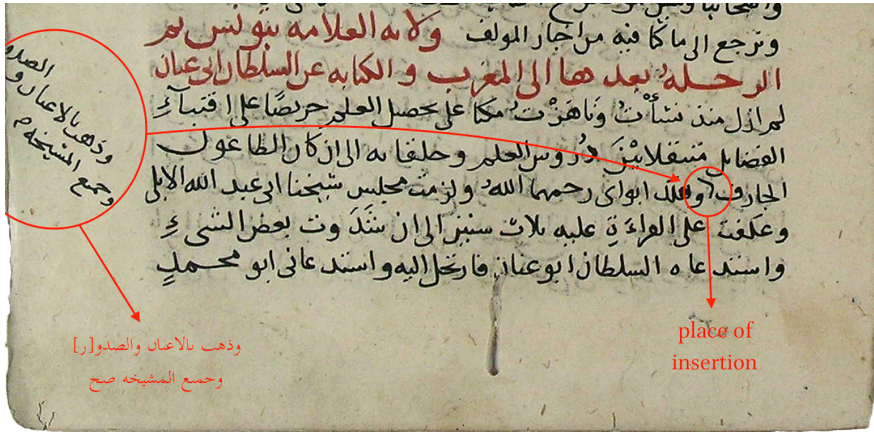 ونرجع الى ما كنا فيه من اخبار المولف ولايه العلامه بتونس ثم
الرحله بعدها الى المغرب والكتابه عن السلطان ابى عنان
لم ازل منذ نشأت وناهزت مكبا على تحصيل العلم حريصا على اقتناء
الفضايل متنقلا بين دروس العلم وحلقاته الى ان كان الطاعون
الجارف وهلك ابواى رحمهما الله ولزمت مجلس شيخنا ابى عبد الله الابلى
وعكفت على القراءة عليه ثلاث سنين الى ان شدوت بعض الشىء
واستدعاه السلطان ابو عنان فارتحل اليه واستدعانى ابو محمد
الصدو
وذهب بالاعيان و
وجميع المشيخه صح
وذهب ىالاعىاں والصدو[ر]
وحمىع المشىخه صح
place of
insertion